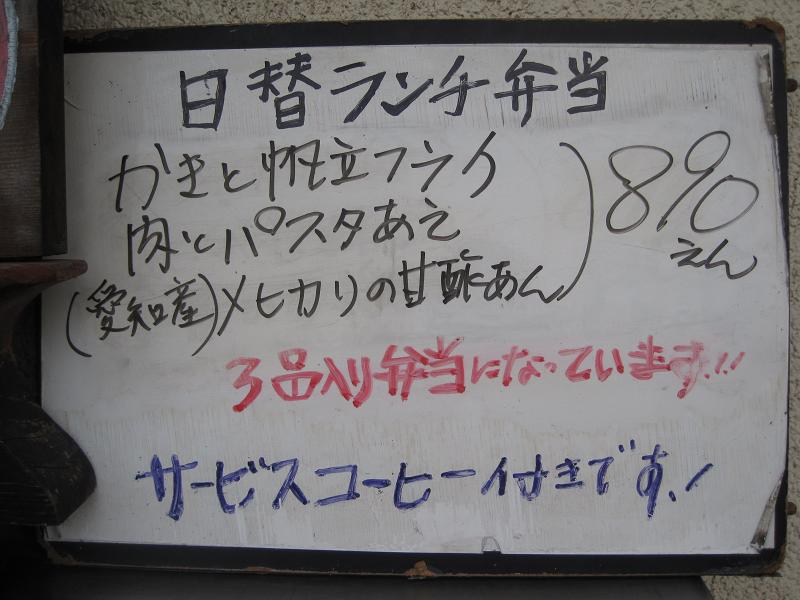 日替ランチ弁当
かきと帆立フライ
肉とパスタあえ
(愛知産)メヒカリの甘酢あん
890
えん
3品入り弁当になっています!!
サービスコーヒー付きです!